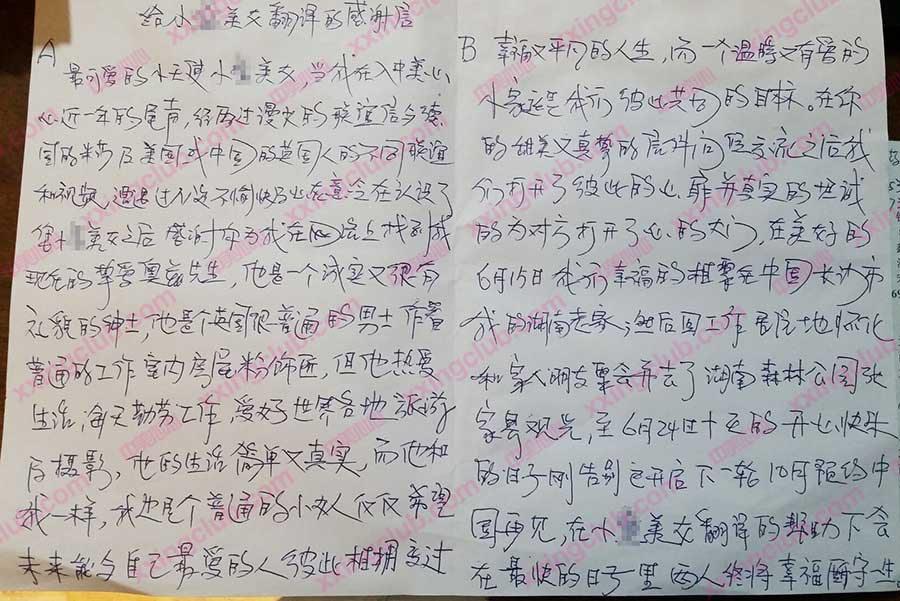 给小 美女翻译的感谢信
A
最可爱的小天使小 美女,当我在入中美心
近一年的尾声,经历过漫长的联谊信与德
国的 及美国或中国的英国人的不同联谊
和视频,遭遇过
美女之后感谢你为我在 站上找到我
现在的挚爱 先生,他是一个诚实又很有
礼貌的绅士,他是个英国很普通的男士作着
普通的工作室内房屋粉饰匠,但他热爱
生活,每天勤劳工作,爱好世界各地旅游
后摄影,他的生活简单又真实,而他和
我一样,我也是个普通的小女人仅仅希望
未来能与自己最爱的人彼此相拥度过
B 幸福又平凡的人生,而一个温暖又有爱的
小家庭是我们彼此共同的目标。在你
的甜美又真挚的信件问 交流之后我
们打开了彼此的心扉并真实的坦诚
的为对方打开了心的大门,在美好的
6月15日我们幸福的相聚在中国长沙市
我的湖南老家,然后回工作居住地怀化
和家人朋友聚会并去了湖南森林公园张
家界观光,至6月24日十天的开心快乐
的日子刚告别已开启下一轮10月预约中
国再见,在小 美女翻译的帮助下会
在最快的日子里两人终将幸福厮守一生。
中美心
xxingclub.com